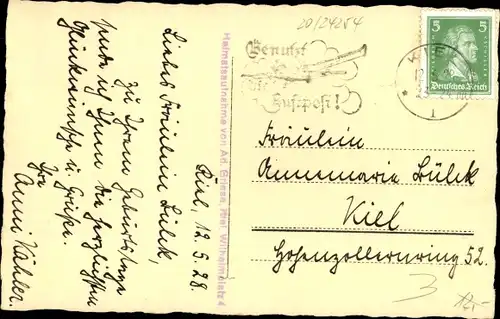 Kiel, 12. 5. 28.
Liebes Fräulein Lülck,
Zu Ihrem Geburtstage
sende ich Ihnen die herzlichsten
Glückwünsche u. Grüße.
Ihre
Anni Kähler.
Heimatsaufnahme von Ad. Kiel, Wilhelminenstr. 4
20/24254
Benutzt
die
Luftpost!
KIEL
1
5 5
Deutsches Reich
Fräulein
Annemarie Lülck
Kiel
Hohenzollernring 52.
3
12,-